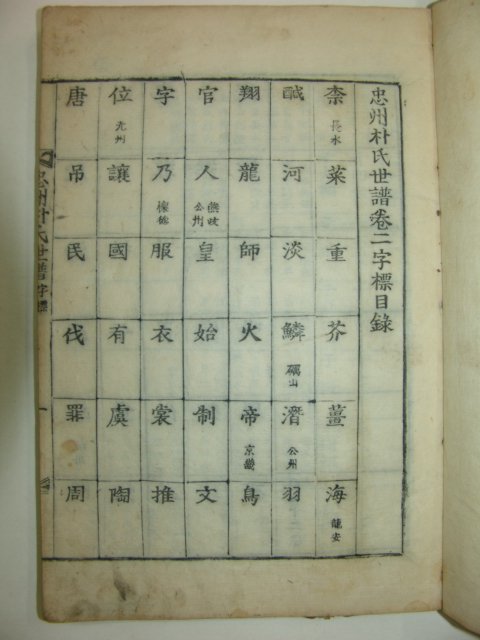 忠州朴氏世譜卷二字標目錄
柰 長水 菜 重 芥 薑 海 龍安
醎 河 淡 鱗 礪山 潛 公州 羽
翔 龍 師 火 帝 京畿 鳥
官 人 燕岐 公州 皇 始 制 文
字 乃 服 衣 裳 推
位 光州 讓 國 有 虞 陶
唐 吊 民 伐 罪 周
忠州朴氏世譜 字標 一